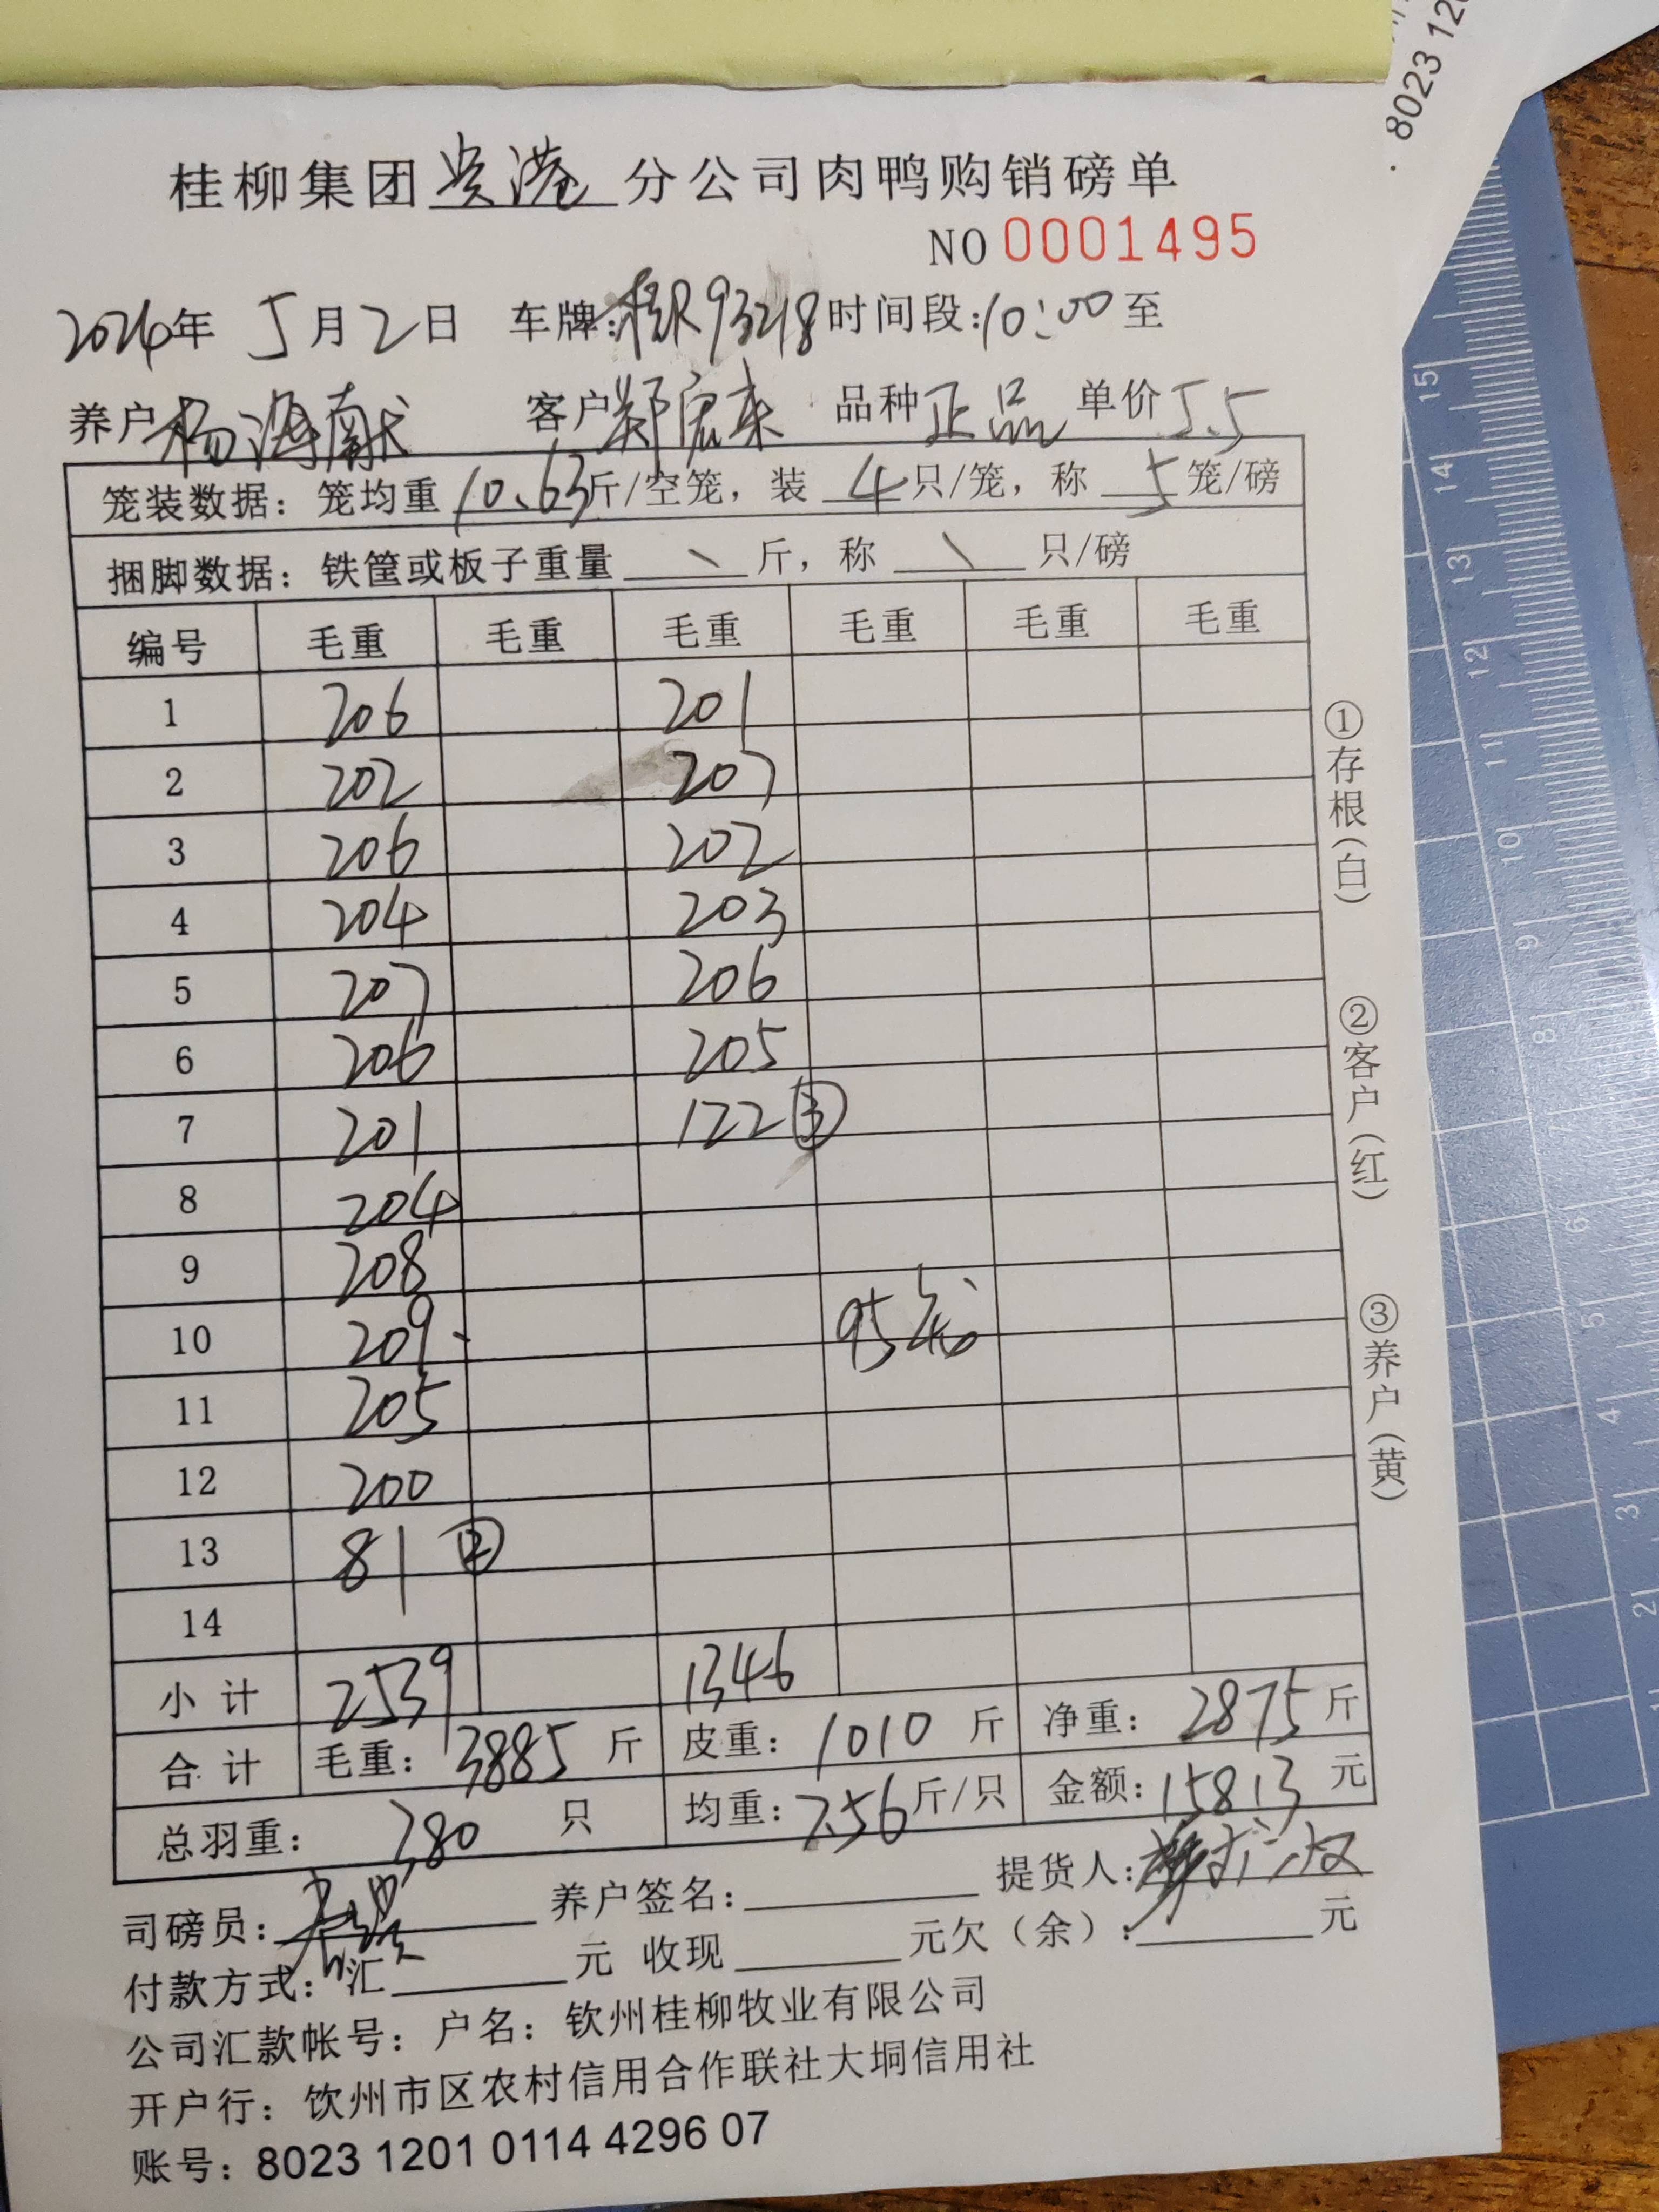 8023 120
桂柳集团贵港分公司肉鸭购销磅单
NO 0001495
2024年 5月2日 车牌:桂R93218时间段:10:00至
养户杨海献 客户郑宏来 品种正品 单价5.5
笼装数据：笼均重10.63斤/空笼，装 4 只/笼，称 5 笼/磅
捆脚数据：铁筐或板子重量 \ 斤，称 \ 只/磅
编号 毛重 毛重 毛重 毛重 毛重 毛重
1 206 201
2 202 207
3 206 202
4 204 203
5 207 206
6 206 205
7 201 122③
8 204
9 208
10 209 95笼
11 205
12 200
13 81②
14
小计 2539 1346
合计 毛重：3885 斤 皮重：1010 斤 净重：2875斤
总羽重：380 只 均重：7.56斤/只 金额：15813 元
司磅员： 养户签名： 提货人：
付款方式：汇 元 收现 元欠（余）： 元
公司汇款帐号：户名：钦州桂柳牧业有限公司
开户行：饮州市区农村信用合作联社大垌信用社
账号：8023 1201 0114 4296 07
①存根(白)
②客户(红)
③养户(黄)
15
14
13
12
11
10
9
8
7
6
5
4
3
2
1